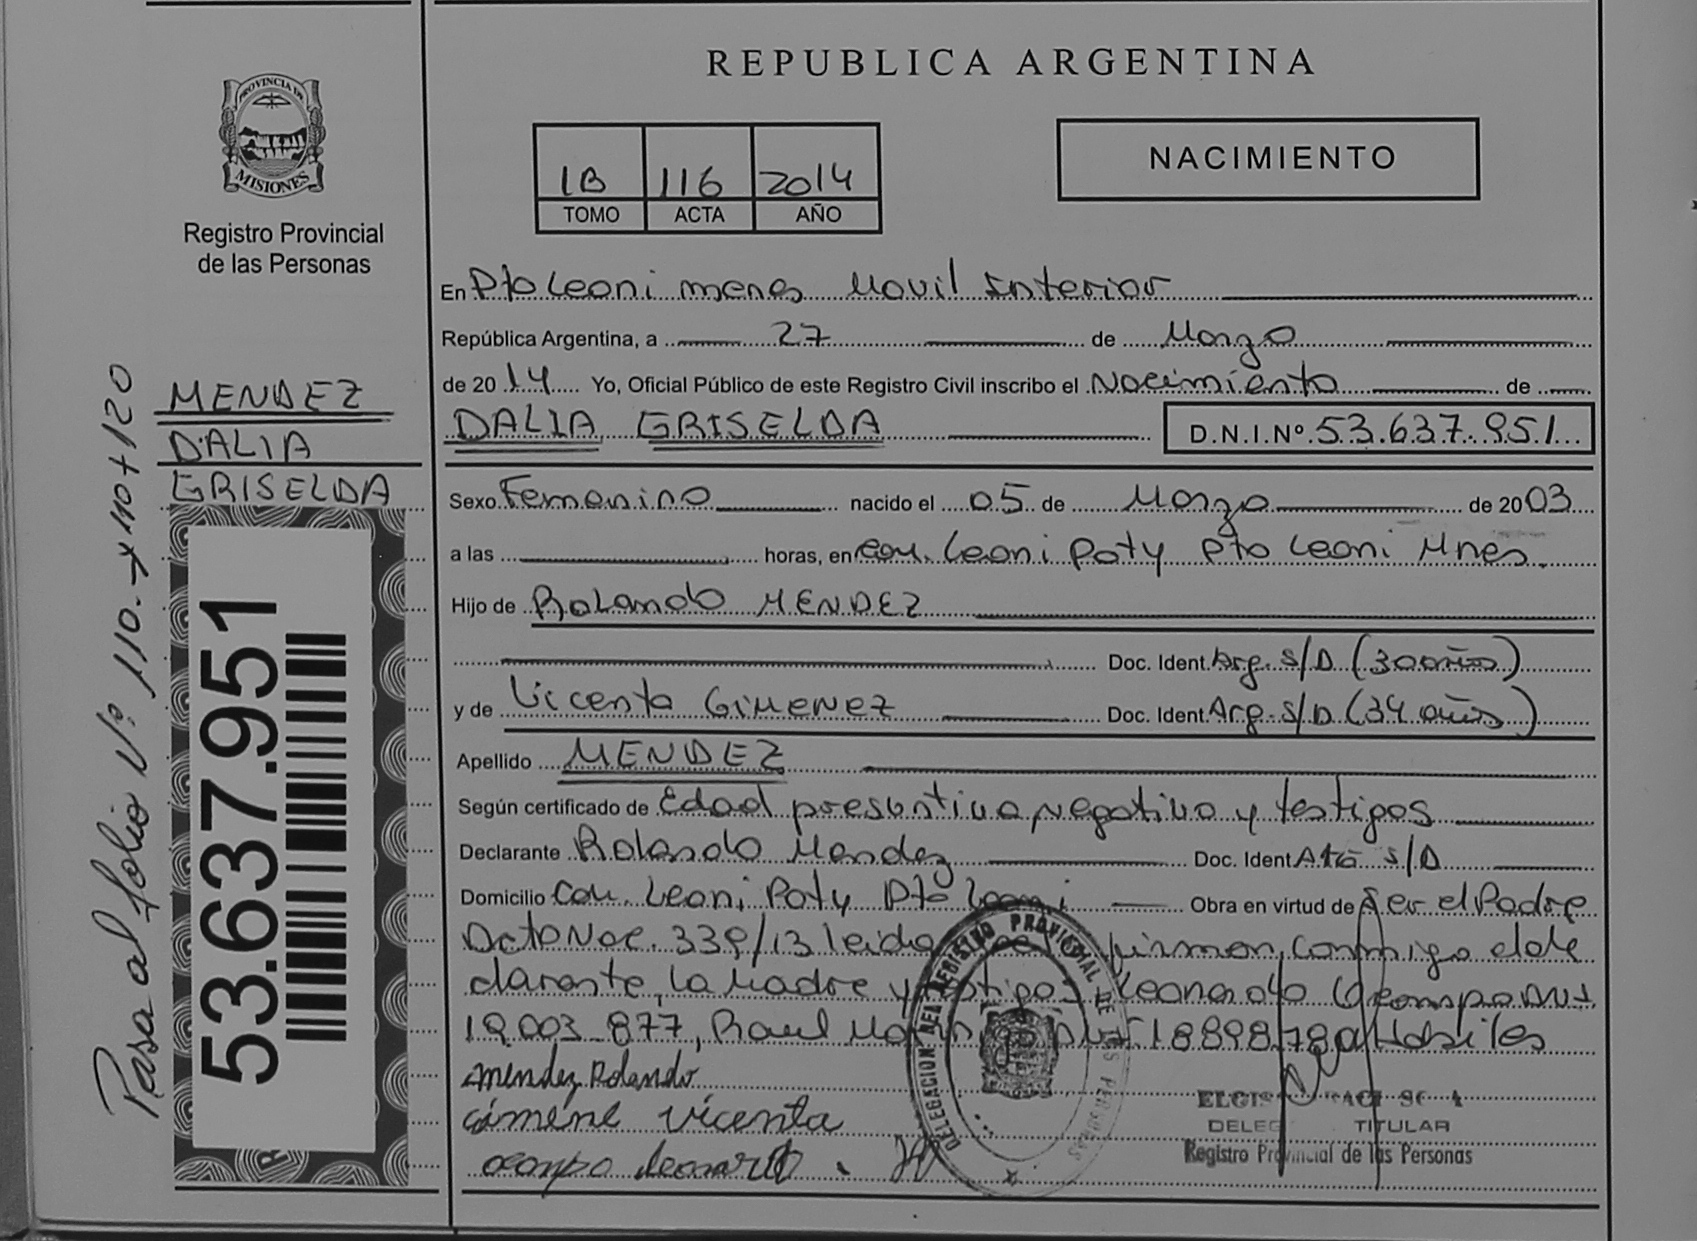 REPUBLICA ARGENTINA
PROVINCIA DE
MISIONES
Registro Provincial
de las Personas
1B 116 2014
TOMO ACTA AÑO
NACIMIENTO
En Pto Leoni mnes Movil Interior
República Argentina, a 27 de Marzo
de 2014 Yo, Oficial Público de este Registro Civil inscribo el Nacimiento de
DALIA GRISELDA D.N.I.Nº 53.637.951
MENDEZ
DALIA
GRISELDA
Sexo Femenino nacido el 05 de Marzo de 2003
a las horas, en Com. Leoni Poty Pto Leoni Mnes.
Hijo de Rolando MENDEZ
Doc. Ident. Arg. S/D (30 años)
y de Vicenta GIMENEZ Doc. Ident Arg. S/D (34 años)
Apellido MENDEZ
Según certificado de Edad presuntiva, negativo y testigos
Declarante Rolando Mendez Doc. Ident S/D
Domicilio Com. Leoni Poty Pto Leoni Obra en virtud de Ser el Padre
Dcto Nac. 339/13 leida firman conmigo el de
clarante, la Madre y testigos Leonardo Ocampo DNI
19.003.877, Raul DNI 18898780 Habiles
mendez Rolando
Gimene vicenta
ocampo leonardo
53.637.951
Pasa al folio Nº 110. → 110 + 120
DELEGACION REGISTRO PROVINCIAL DE LAS PERSONAS
TITULAR
Registro Provincial de las Personas